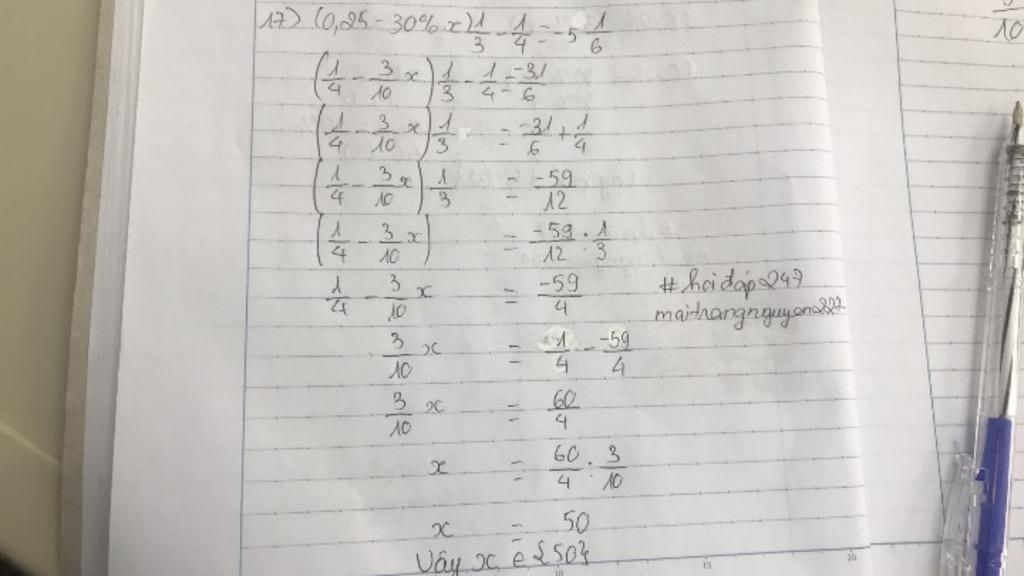 17) (0,25 - 30% x) 1/3 - 1/4 = -5 1/6
(1/4 - 3/10 x) 1/3 - 1/4 = -31/6
(1/4 - 3/10 x) 1/3 = -31/6 + 1/4
(1/4 - 3/10 x) 1/3 = -59/12
(1/4 - 3/10 x) = -59/12 : 1/3
1/4 - 3/10 x = -59/4
#hoidap247
maitrangnguyen227
3/10 x = 1/4 - -59/4
3/10 x = 60/4
x = 60/4 : 3/10
x = 50
Vậy x ∈ {50}
10 15 20
10